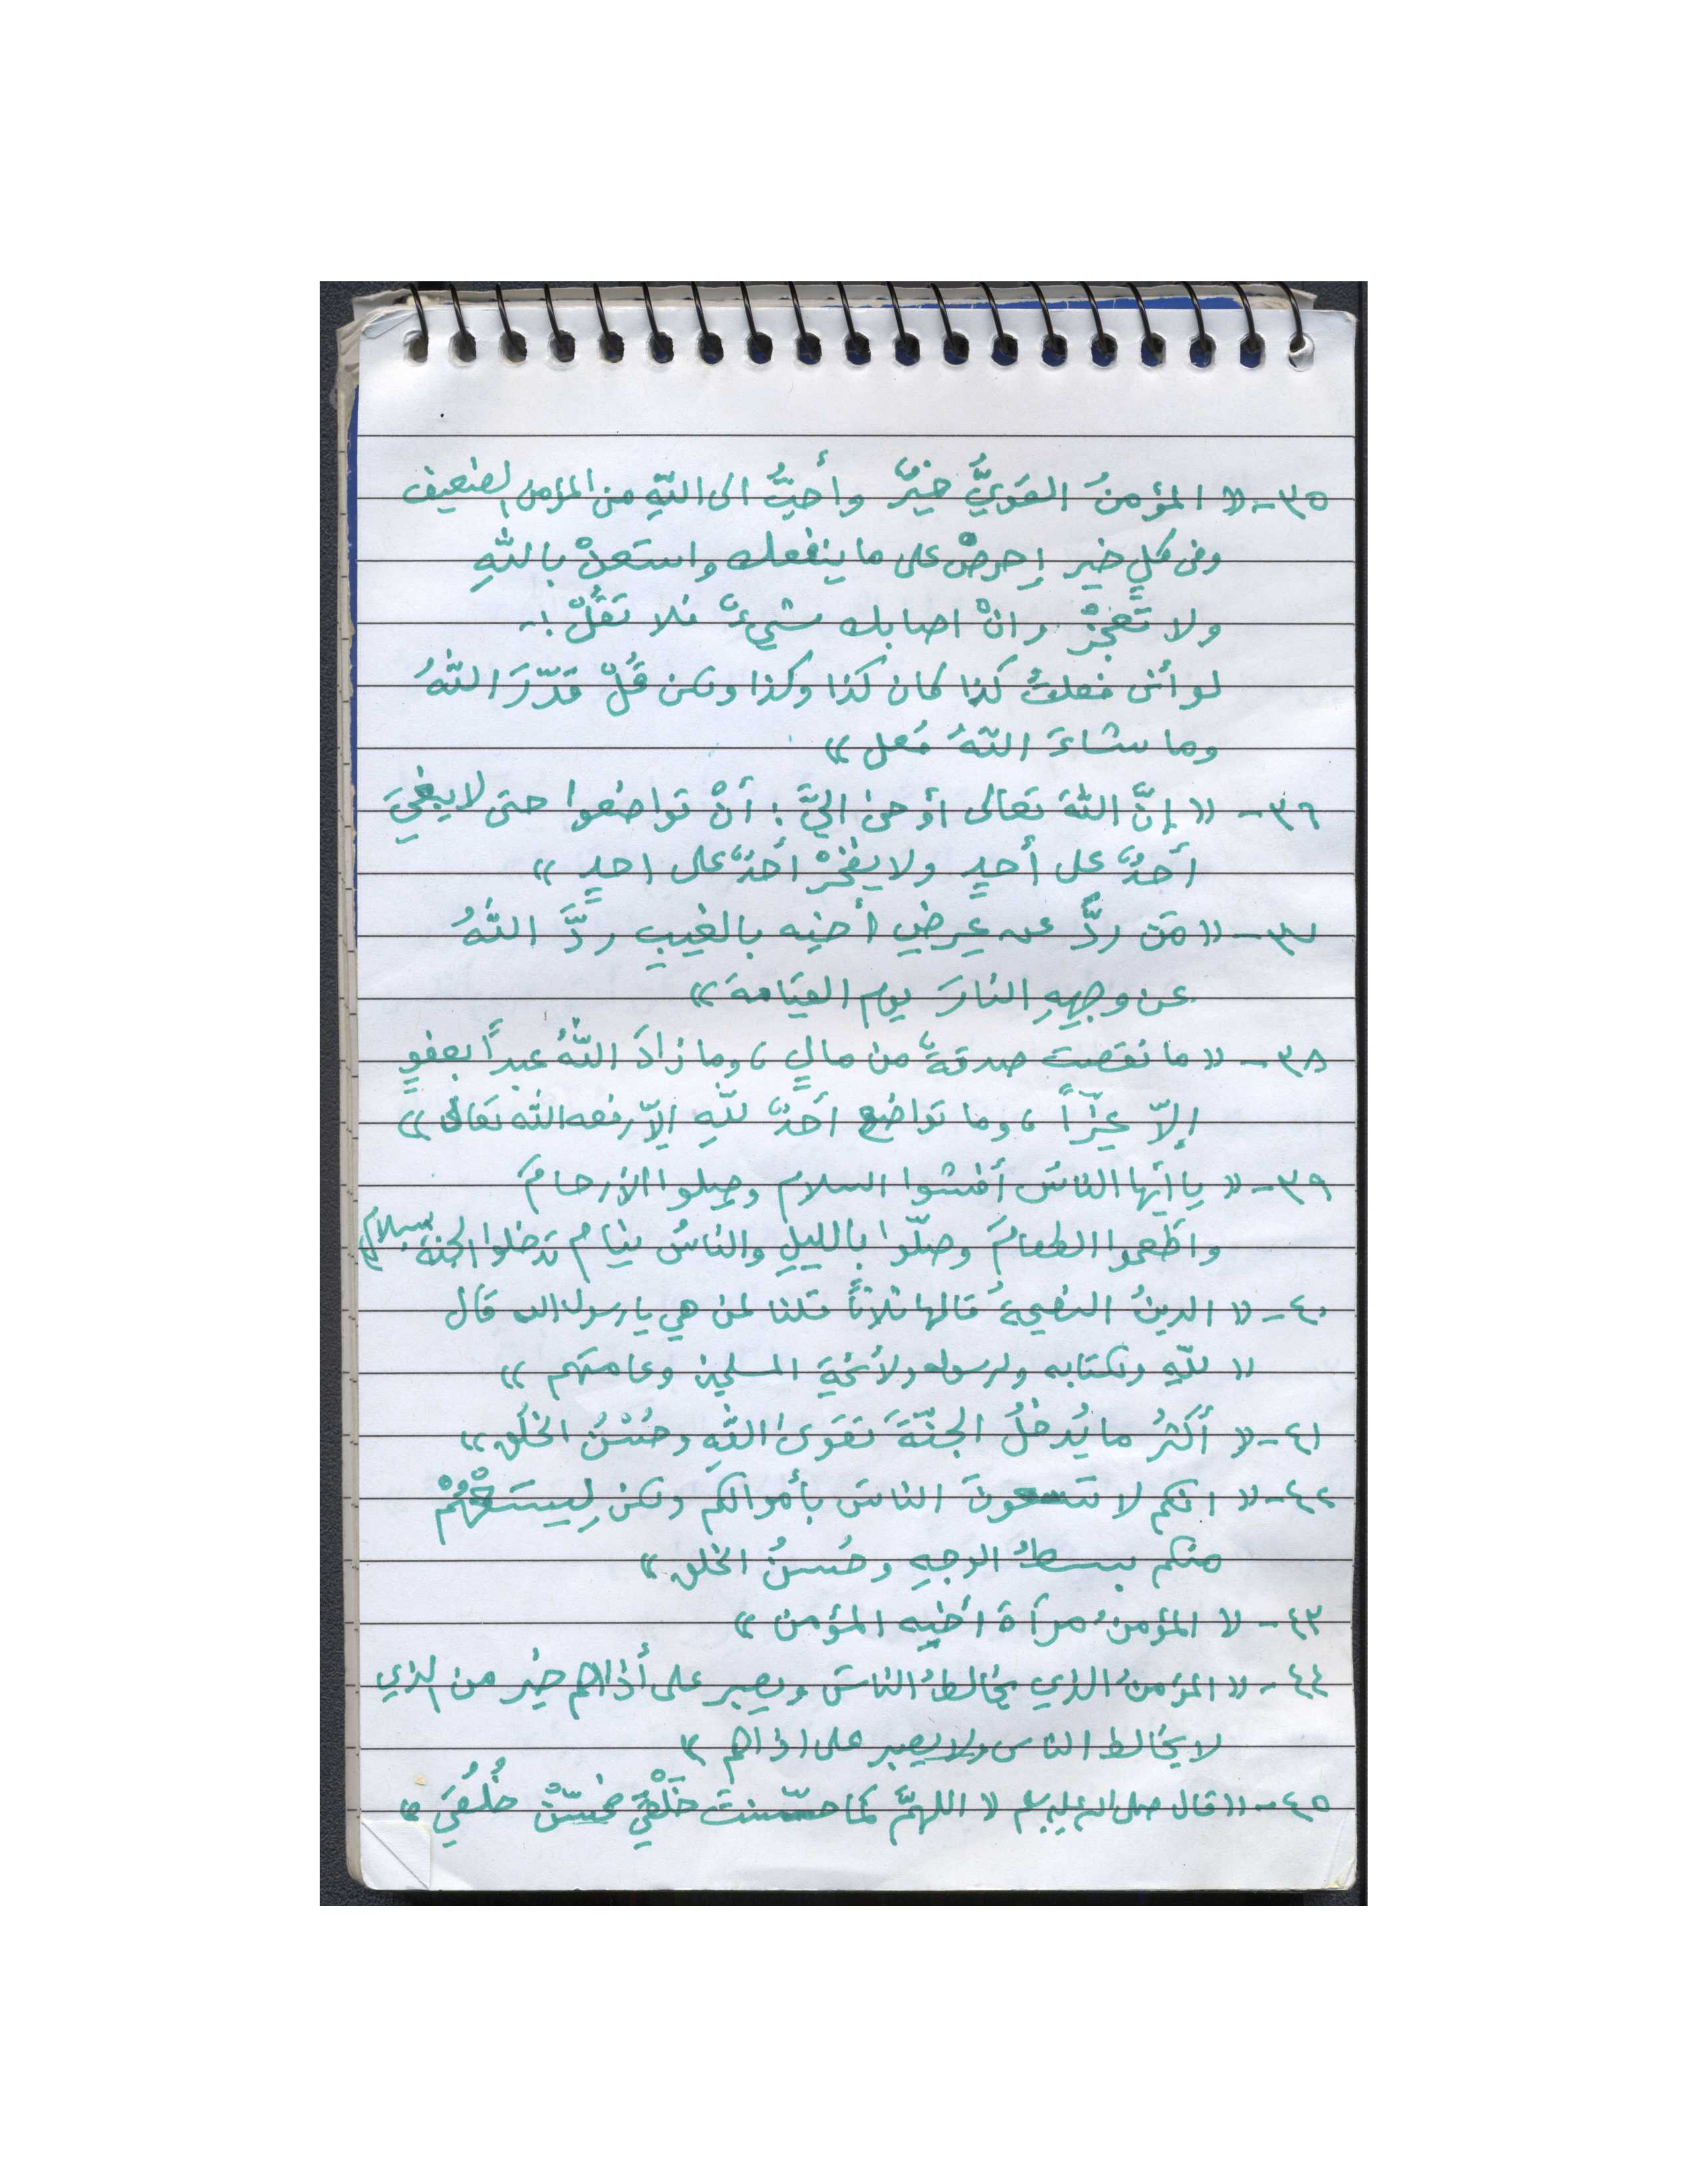 ٣٥- « المؤمنُ القَويُّ خيرٌ وأَحبُّ الى اللّهِ من المؤمن الضعيف
وفى كلٍ خير إحرصْ على ما ينفعك واستعنْ باللّهِ
ولا تَعجَزْ وانْ اصابك شيءٌ فلا تقُلْ :-
لو أنى فعلتُ كذا كان كذا وكذا ولكن قُلْ قَدّرَ اللّهُ
وما شاءَ اللّهُ فعل »
٣٦- « إنَّ اللّهَ تعالى أوحىٰ اليَّ : أنْ تواضعوا حتى لا يبغيَ
أحدٌ على أحدٍ ولا يفخرْ أحدٌ على احدٍ »
٣٧- « مَن ردَّ عن عِرضِ أخيه بالغيبِ ردَّ اللّهُ
عن وجهِهِ النارَ يوم القيَامةَ »
٣٨- « ما نقصت صدقةٌ من مالٍ ، وما زادَ اللّهُ عبداً بعفوٍ
إلاّ عِزّاً ، وما تواضع أحدٌ للّهِ إلاّ رفعه اللّه تعالى »
٣٩- « يا أيها الناسُ أفشوا السلام وصِلوا الأرحامَ
واطَعموا الطعامَ وصلّوا بالليلِ والناسُ نيام تدخلوا الجنة بسلام »
٤٠- « الدينُ النصيحةُ قالها ثلاثاً قلنا لمن هي يا رسول الله قال
« للّهِ ولكتابه ولرسوله ولأئمةِ المسلمين وعامتهم »
٤١- « أكثرُ ما يُدخلُ الجنّةَ تقوَىٰ اللّهِ وحُسْنُ الخلُق »
٤٢- « انكم لا تسعونَ الناسَ بأموالكم ولكن لِيسَعْهُمْ
منكم بسطُ الوجهِ وحُسنُ الخلق »
٤٣- « المؤمنُ مرآة أخيه المؤمن »
٤٤- « المؤمنُ الذي يخالطُ الناسَ ويصبر على أذاهم خير من الذي
لا يخالط الناس ولا يصبر على اذاهم »
٤٥- « قال صلى الله عليه وسلم « اللهمَّ كما حسّنتَ خَلْقيَ فحَسّنْ خُلُقيَ »